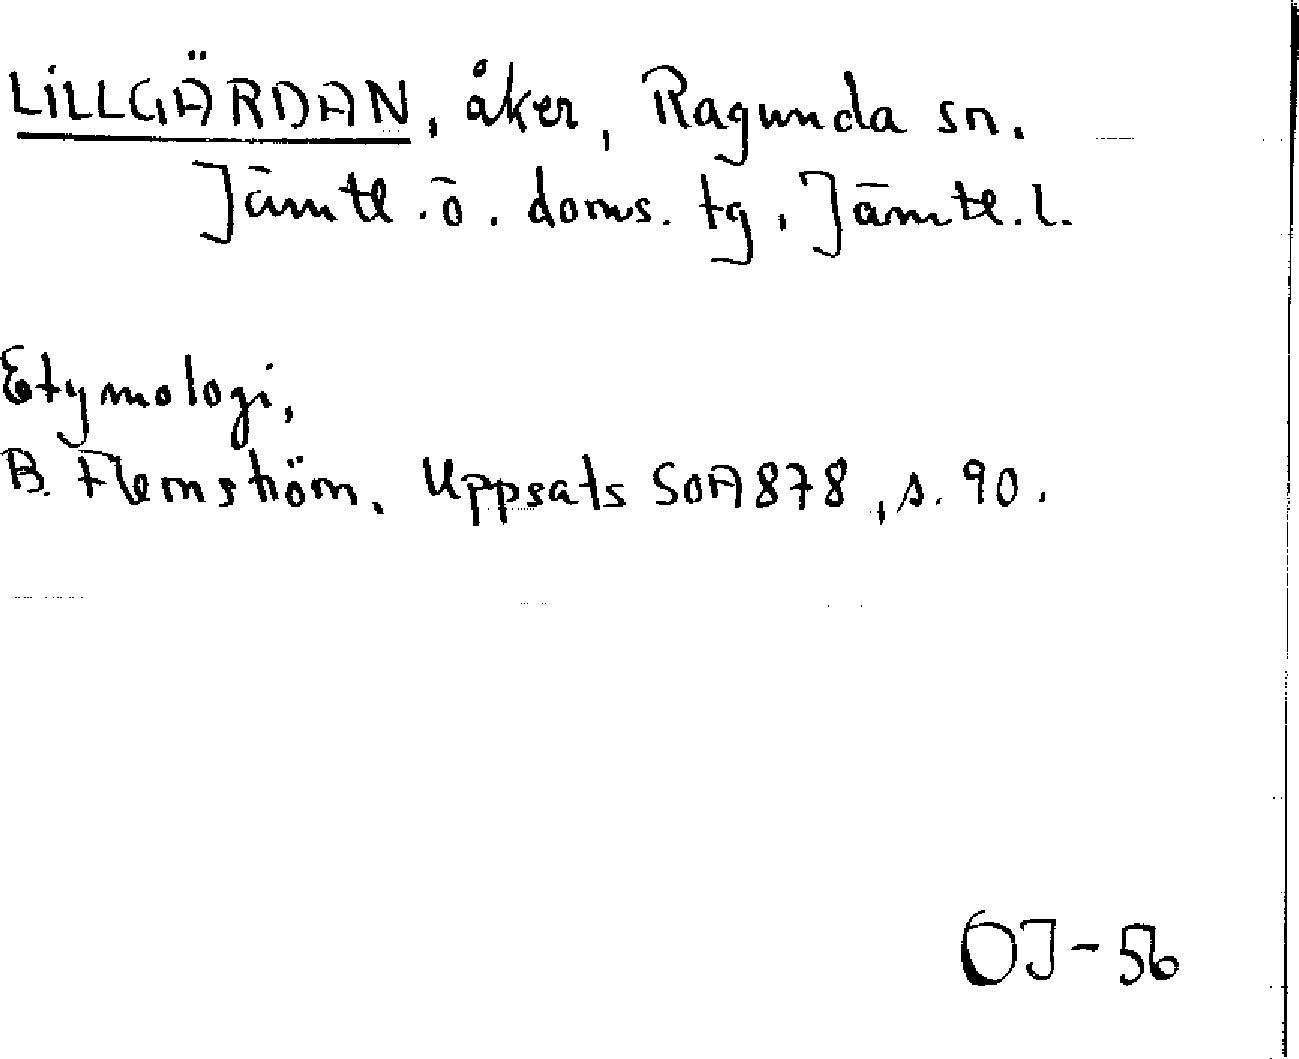 LILLGÄRDAN, åker, Ragunda sn.
Jämtl. ö. doms. tg, Jämtl. l.
Etymologi,
B. Flemström. Uppsats SOA 878, s. 90.
OJ-56